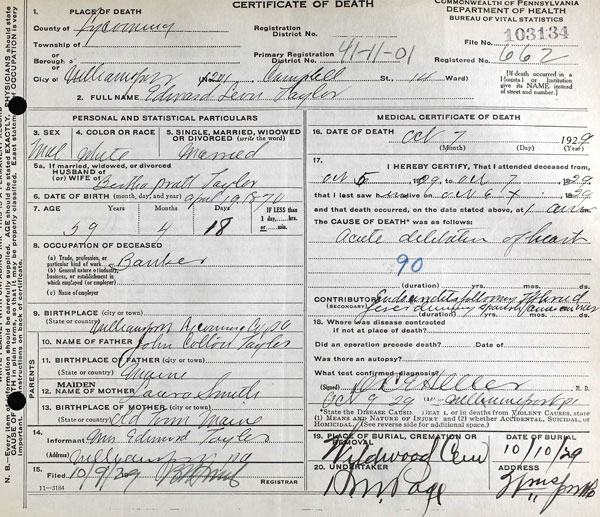 CERTIFICATE OF DEATH
COMMONWEALTH OF PENNSYLVANIA
DEPARTMENT OF HEALTH
BUREAU OF VITAL STATISTICS
1. PLACE OF DEATH
County of Lycoming
Township of
Borough of
City of Williamsport No. 1201 Campbell St., 14 Ward
Registration District No.
Primary Registration District No. 41-11-01
File No. 103134
Registered No. 662
[If death occurred in a Hospital or Institution give its NAME instead of street and number.]
2. FULL NAME Edward Leon Taylor
PERSONAL AND STATISTICAL PARTICULARS
3. SEX Male
4. COLOR OR RACE White
5. SINGLE, MARRIED, WIDOWED OR DIVORCED (write the word) Married
5a. If married, widowed, or divorced
HUSBAND of
(or) WIFE of Bertha Pratt Taylor
6. DATE OF BIRTH (month, day, and year) April 19 1870
7. AGE Years 59 Months 4 Days 18 If LESS than 1 day, hrs. or min.
8. OCCUPATION OF DECEASED
(a) Trade, profession, or particular kind of work Banker
(b) General nature of industry, business, or establishment in which employed (or employer)
(c) Name of employer
9. BIRTHPLACE (city or town) Williamsport Lycoming Co Pa
(State or country)
10. NAME OF FATHER John Colton Taylor
11. BIRTHPLACE OF FATHER (city or town)
(State or country) Maine
12. MAIDEN NAME OF MOTHER Laura Smith
13. BIRTHPLACE OF MOTHER (city or town)
(State or country) Old Maine
PARENTS
14. Informant Mrs Edward Taylor
(Address) Williamsport Pa
15. Filed 10/9/29
REGISTRAR
11-3184
MEDICAL CERTIFICATE OF DEATH
16. DATE OF DEATH Oct 7 1929
(Month) (Day) (Year)
17. I HEREBY CERTIFY, That I attended deceased from
Oct 5 1929 to Oct 7 1929
that I last saw him alive on Oct 6 1929
and that death occurred, on the date stated above, at 1 am
The CAUSE OF DEATH* was as follows:
Acute dilitation of heart
90
(duration) yrs. mos. ds.
CONTRIBUTORY Endocarditis following Typhoid
(SECONDARY) fever during Spanish American War
(duration) yrs. mos. ds.
18. Where was disease contracted
if not at place of death?
Did an operation precede death? Date of
Was there an autopsy?
What test confirmed diagnosis?
(Signed) Heller M. D.
Oct 9 29 Williamsport Pa
*State the DISEASE CAUSING DEATH, or in deaths from VIOLENT CAUSES, state (1) MEANS AND NATURE OF INJURY and (2) whether ACCIDENTAL, SUICIDAL, or HOMICIDAL. (See reverse side for additional space.)
19. PLACE OF BURIAL, CREMATION OR REMOVAL Wildwood Cem
DATE OF BURIAL 10/10/29
20. UNDERTAKER Page
ADDRESS Wmsport Pa